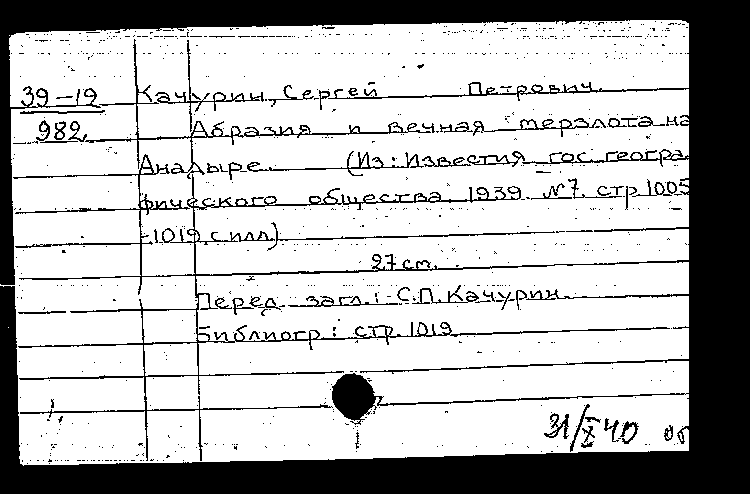 39-19 Качурин, Сергей Петрович.
982. Абразия и вечная мерзлота на
Анадыре. (Из: Известия гос. геогра-
фического общества. 1939. №7. стр 1005
-1019, с илл.)
27 см.
Перед загл.: С.П. Качурин.
Библиогр.: стр. 1019
31/X 40 об